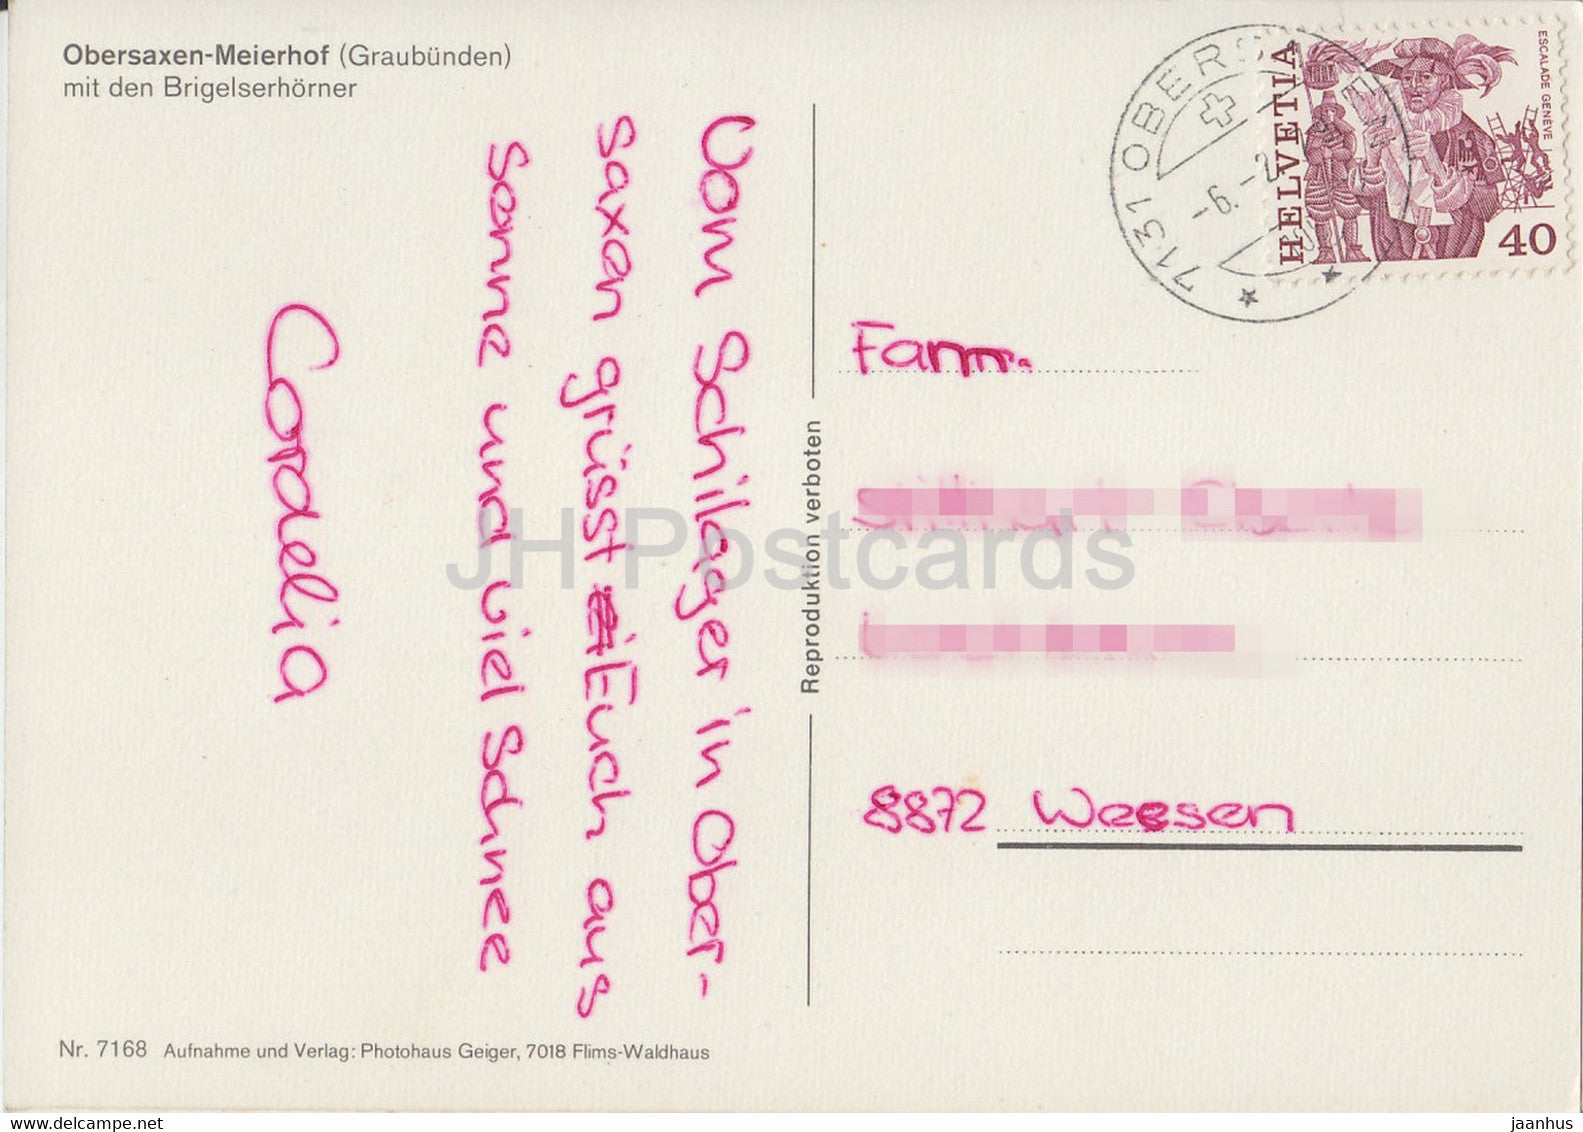 Obersaxen-Meierhof (Graubünden)
mit den Brigelserhörner
Vom Schilager in Ober-
saxen grüsst Euch aus
Sonne und viel Schnee
Cordelia
Nr. 7168 Aufnahme und Verlag: Photohaus Geiger, 7018 Flims-Waldhaus
Reproduktion verboten
7131 OBERS
-6.-2
HELVETIA
ESCALADE GENÈVE
40
Fam.
8872 Weesen
JH Postcards
HipPostcard.com
jaanhus